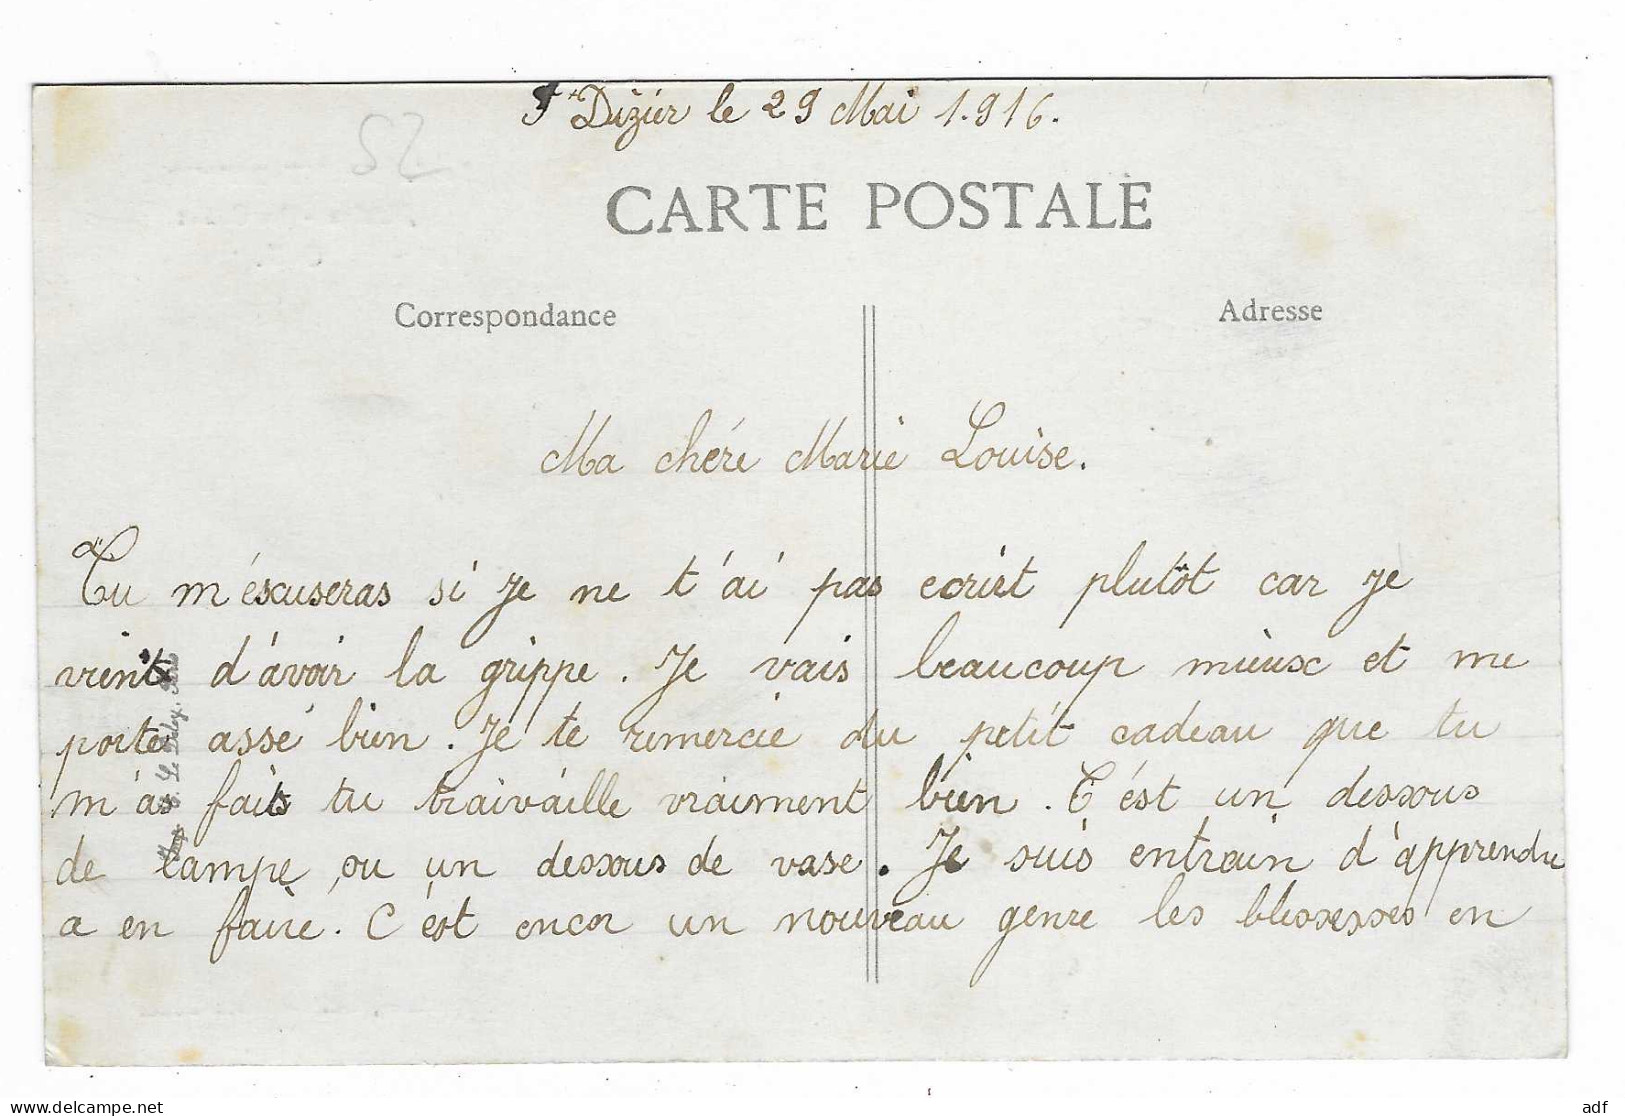 St Dizier le 29 Mai 1.916.
52
CARTE POSTALE
Correspondance
Adresse
Ma chére Marie Louise.
Tu m'éxcuseras si je ne t'ai pas ecrirt plutôt car je
vient d'avoir la grippe. Je vais beaucoup mieux et me
porte assé bien. Je te remercie du petit cadeau que tu
m'as fait tu traivaille vraiment bien. C'ést un dessous
de lampe, ou un dessous de vase. Je suis entrain d'apprendre
a en faire. C'est encor un nouveau genre les blessesses en
www.delcampe.net
adf